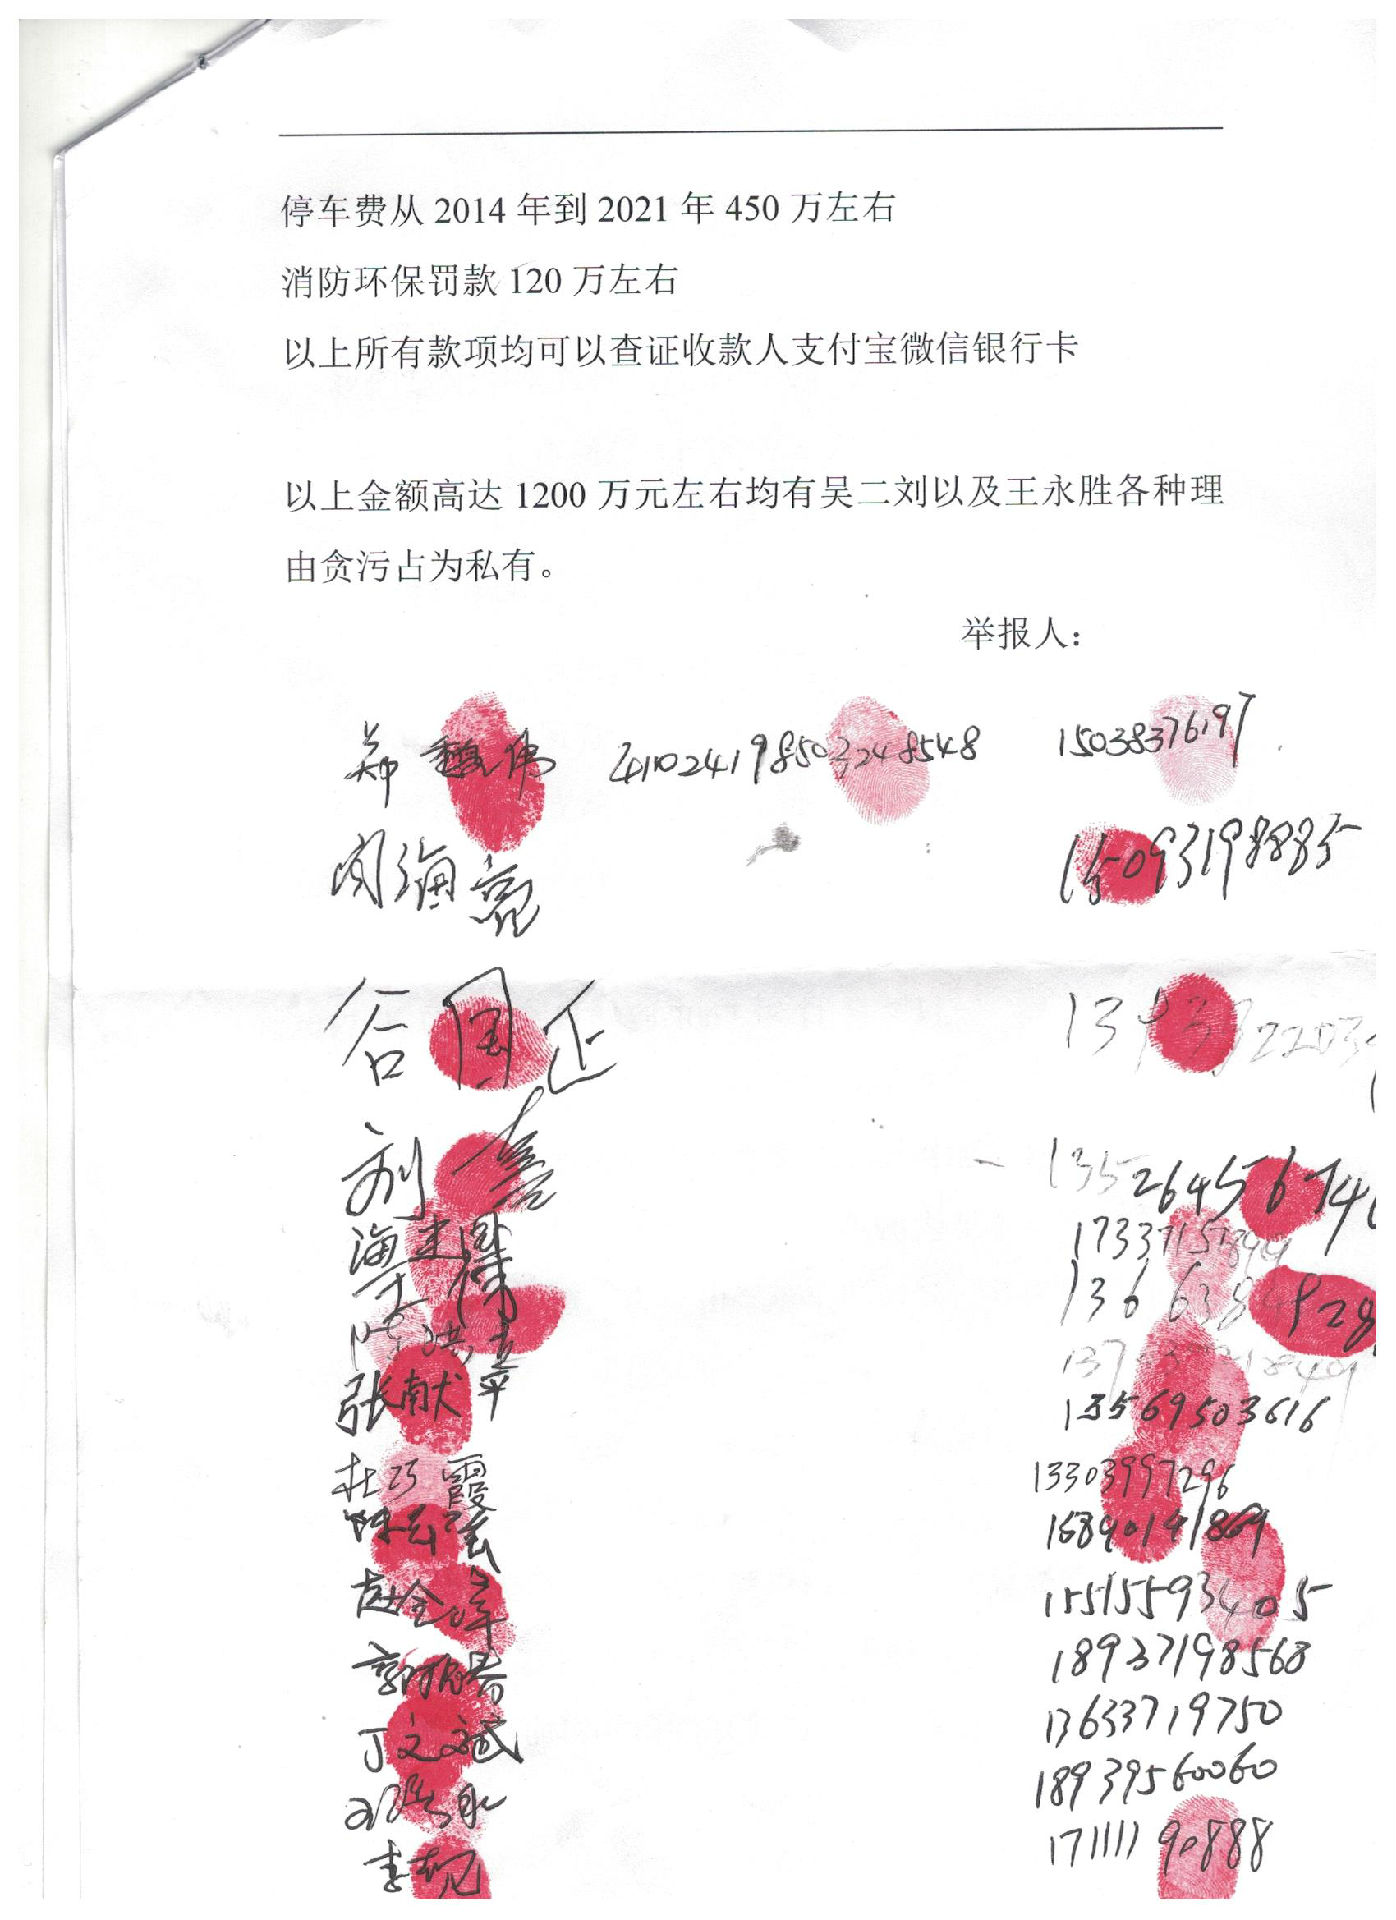 停车费从 2014 年到 2021 年 450 万左右
消防环保罚款 120 万左右
以上所有款项均可以查证收款人支付宝微信银行卡
以上金额高达 1200 万元左右均有吴二刘以及王永胜各种理
由贪污占为私有。
举报人：
郑魏伟 410241985032248548 15038376197
周海亮 15093198885
谷国正
刘鑫 1352645674
海建国
张献平 13569503616
杜巧霞 13303997296
15890141869
赵金萍 15515593405
18937198568
丁文斌 13633719750
18939560060
李靓 17111190888